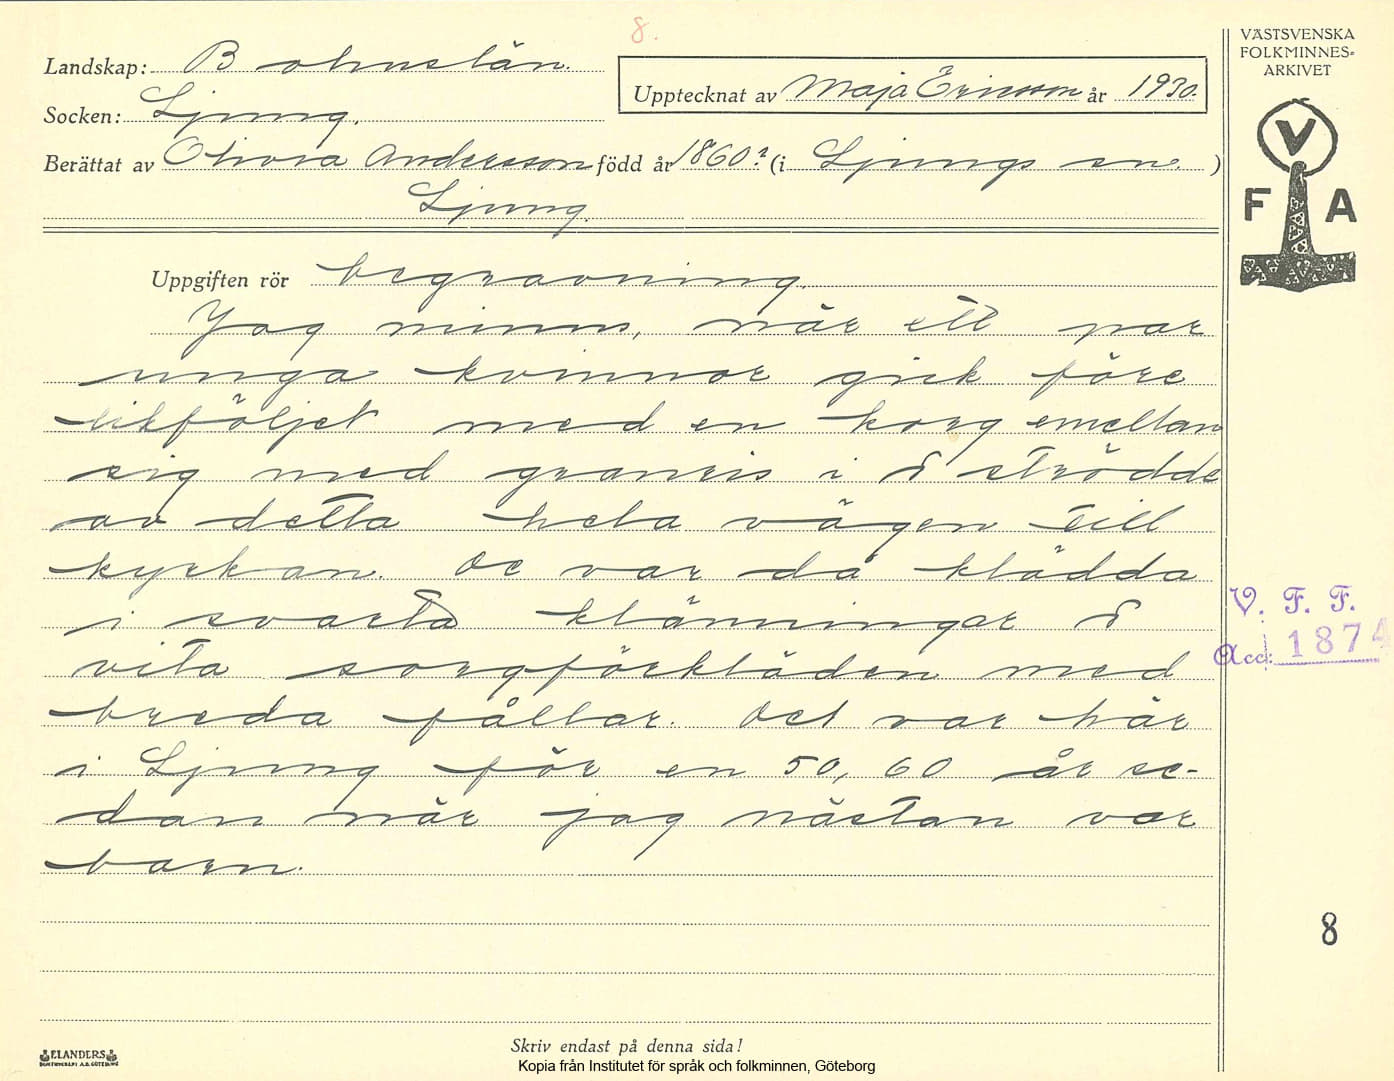 8.
VÄSTSVENSKA
FOLKMINNES-
ARKIVET
Landskap: Bohuslän.
Upptecknat av Maja Ericsson år 1930.
Socken: Ljung.
Berättat av Andersson född år 1860? (i Ljungs sn. )
Ljung.
V
F A
Uppgiften rör begravning.
Jag minns, når ett par
unga kvinnor gick före
likföljet med en korg emellan
sig med granris i o strödde
av detta hela vägen till
kyrkan. De var då klädda
i svarta klänningar o
vita sorgförkläden med
breda fållar. Det var här
i Ljung för en 50, 60 år se-
dan når jag nästan var
barn.
V. F. F.
Acc: 1874
8
Skriv endast på denna sida!
ELANDERS
Kopia från Institutet för språk och folkminnen, Göteborg